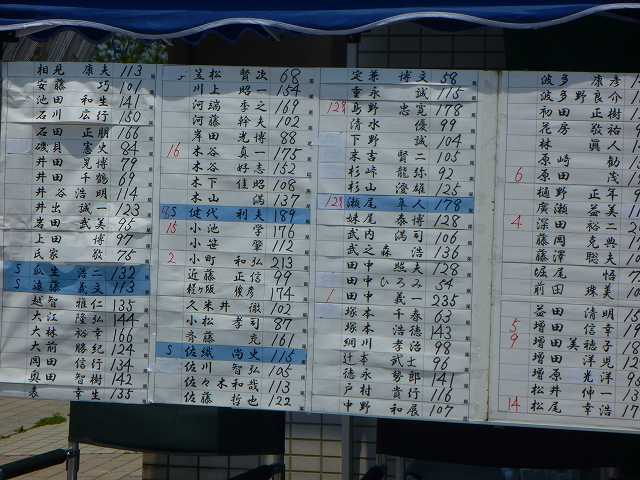 相見 康夫 113
安藤 巧 101
池田 和生 141
石川 宏行 150
石田 正朋 166
磯貝 憲史 84
井田 晃博 79
井田 千鶴 69
井谷 浩明 114
井出 誠一 123
岩田 武美 95
上田 博 97
氏家 敬 75
S 瓜生 浩二 132
S 遠藤 義文 113
越智 雅仁 135
大江 隆弘 144
大林 裕幸 166
大前 勝紀 124
岡田 信行 134
奥田 智樹 142
表 幸生 135
笠松 賢次 68
川上 昭一 154
河端 季之 169
河藤 幹夫 102
岸田 光博 88
16 木谷 真一 175
木谷 好志 152
木下 佳昭 108
木山 満 137
健代 利夫 189
15 小池 学 176
小笹 肇 112
2 小町 和弘 213
近藤 正信 99
軽ヶ阪 俊彦 174
久米井 徹 102
小松 孝司 87
斉藤 充 161
S 佐織 尚史 115
佐川 智弘 105
佐々木 和哉 113
佐藤 哲也 122
定兼 博文 58
重永 誠 115
島野 忠寛 178
清水 優 99
下野 誠 104
末吉 賢二 105
杉峠 龍弥 92
杉山 澄雄 125
瀬尾 年人 178
妹尾 泰博 128
武内 満司 106
武之森 浩 136
田中 照夫 128
田中 ひろみ 54
1 田中 義一 235
塚本 千春 63
塚本 浩徳 143
綱川 孝治 98
辻本 武士 96
徳永 勢郎 141
戸村 貢行 116
中野 和展 107
波多 康彦
波多野 良介
初田 正樹
花房 敬祐
林 眞人
原崎 勧
6 原田 茂
樋野 正年
廣瀬 益美
4 深田 裕二
藤岡 克典
藤澤 聡夫
堀尾 悟
前田 珠美
益田 清明
5 増田 信幸
9 増田 美穂子
増田 洋児
増原 光洋
松井 伸一
14 松尾 幸浩